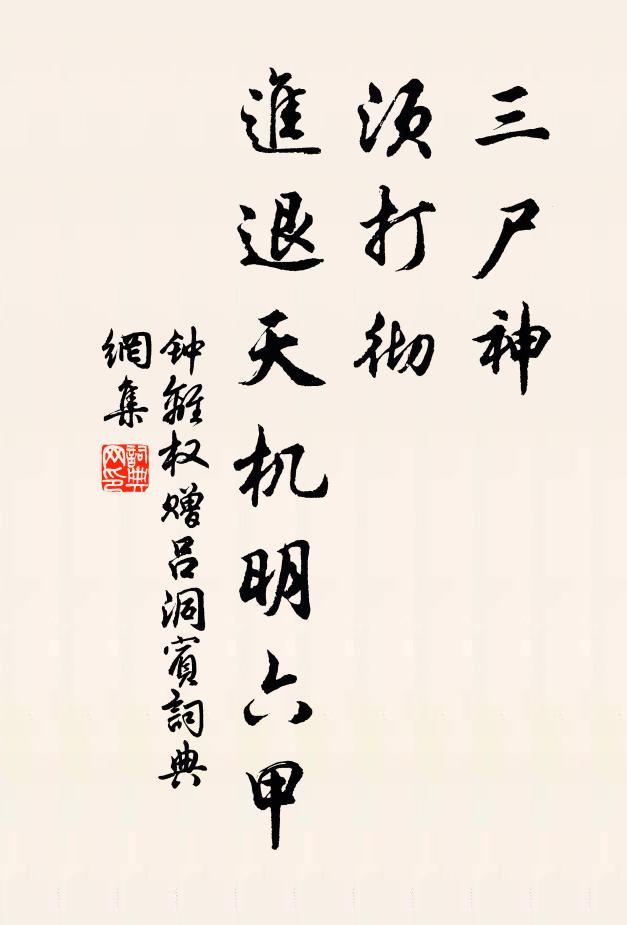 三尸神
须打彻
進退天机明六甲
钟離权赠吕洞賓詞典
網集
詞典网印